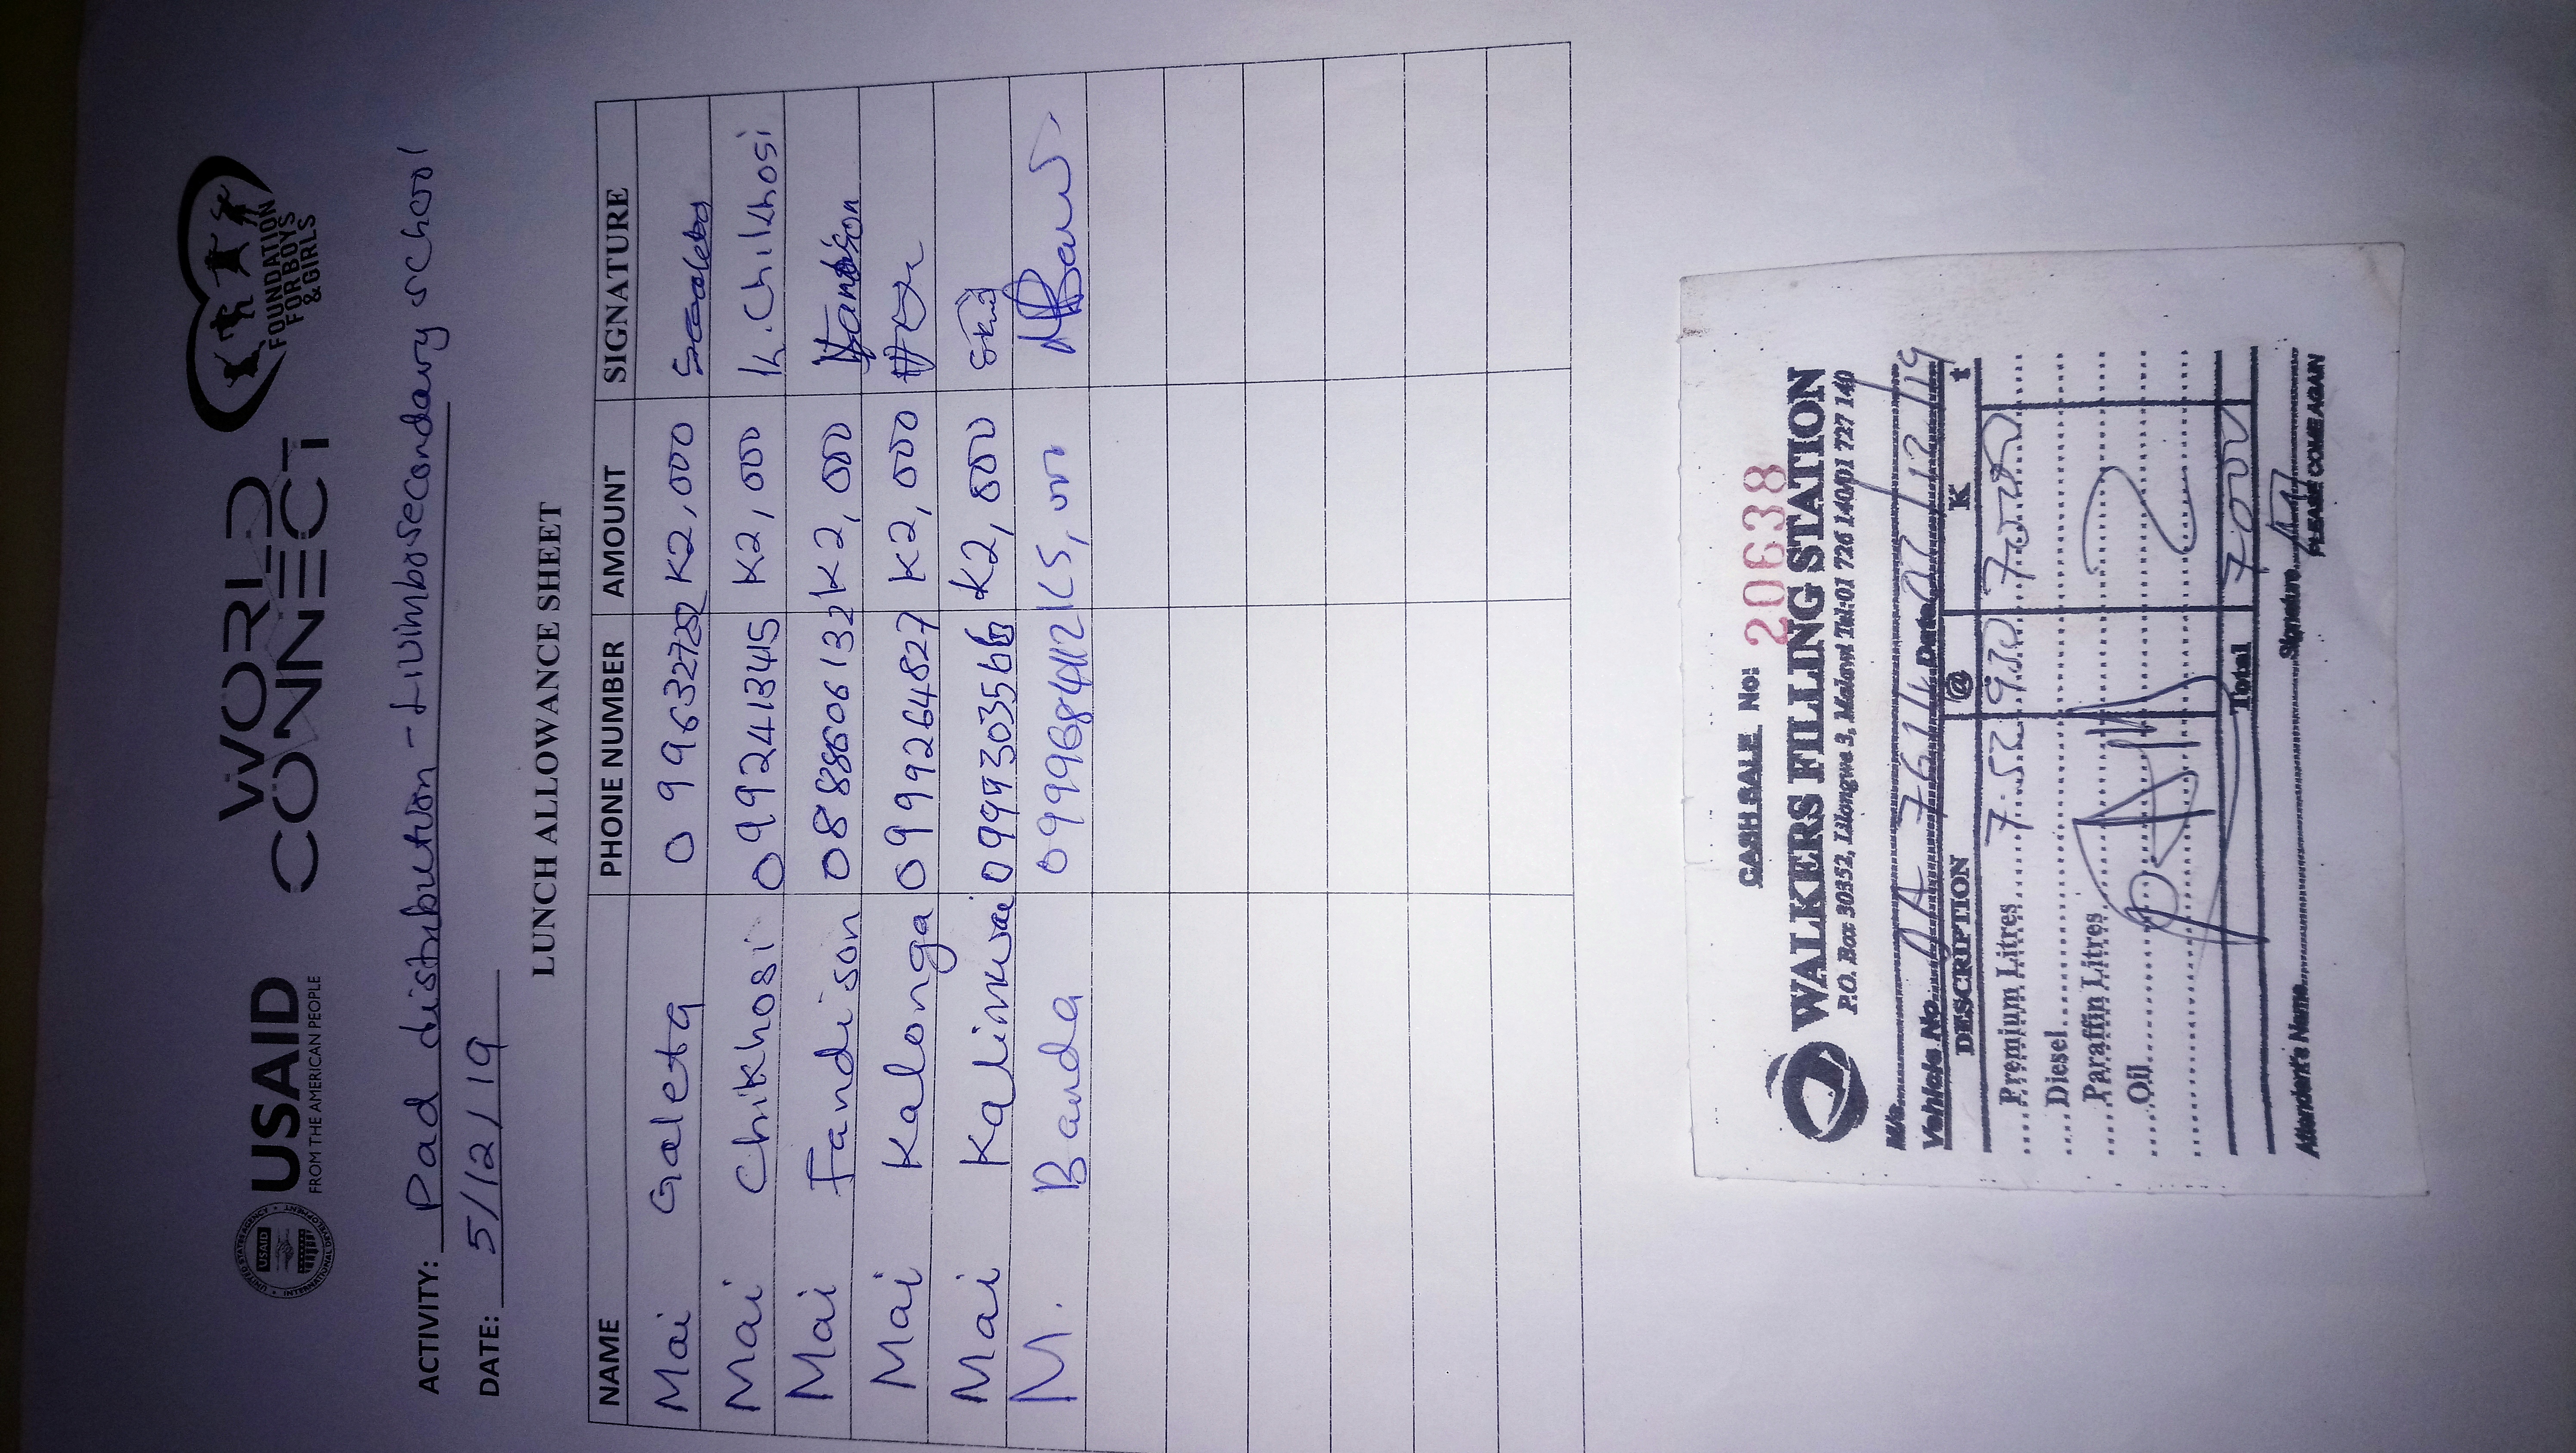 USAID
FROM THE AMERICAN PEOPLE
UNITED STATES AGENCY
INTERNATIONAL DEVELOPMENT
USAID
WORLD
CONNECT
FOUNDATION
FOR BOYS
& GIRLS
ACTIVITY: Pad distribution - Livimbo secondary school
DATE: 5/12/19
LUNCH ALLOWANCE SHEET
NAME PHONE NUMBER AMOUNT SIGNATURE
Mai Galeta K2,000
Mai Chikhosi 0992413415 K2,000 K.Chilkhosi
Mai Fandison 0888606132 K2,000 Fandison
Mai Kalonga 0999264827 K2,000
Mai Kalimwai K2,000
M. Banda K5,000
CASH SALE No: 20638
WALKERS FILLING STATION
P.O. Box 30352, Lilongwe 3, Malawi Tel:01 726 140/01 727 140
M/s
Vehicle No. DA 7614 Date 07/12/19
DESCRIPTION @ K t
Premium Litres 7.52 930 7000
Diesel
Paraffin Litres
Oil
Total 7000
Attendent's Name Signature
PLEASE COME AGAIN